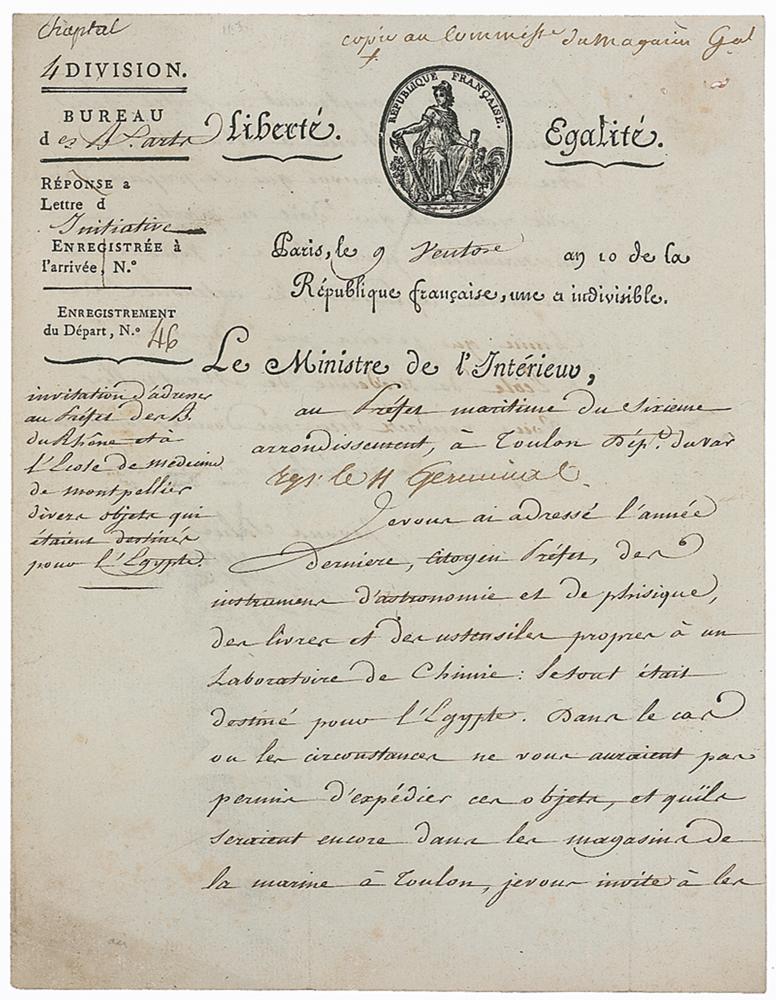 Chaptal
copie au Commiss.re du Magasin G.al
4 DIVISION.
BUREAU
des B. arts
Liberté.
RÉPUBLIQUE FRANÇAISE.
Egalité.
RÉPONSE a
Lettre d
Initiative
ENREGISTRÉE à
l'arrivée, N.°
Paris, le 9 Ventose an 10 de la
République française, une et indivisible.
ENREGISTREMENT
du Départ, N.° 46
Le Ministre de l'Intérieur,
invitation d'adresser
au Préfet des B.
du Rhône et à
l'Ecole de médecine
de montpellier
divers objets qui
étaient destinés
pour l'Egypte.
au Préfet maritime du Sixieme
arrondissement, à Toulon Dép.t du var
le 11 Germinal.
Je vous ai adressé l'année
derniere, citoyen Préfet, des
instrumens d'astronomie et de phisique,
des livres et des ustensiles propres à un
Laboratoire de Chimie : le tout était
destiné pour l'Egypte. Dans le cas
ou les circonstances ne vous auraient pas
permis d'expédier ces objets, et qu'ils
seraient encore dans les magasins de
la marine à Toulon, je vous invite à les